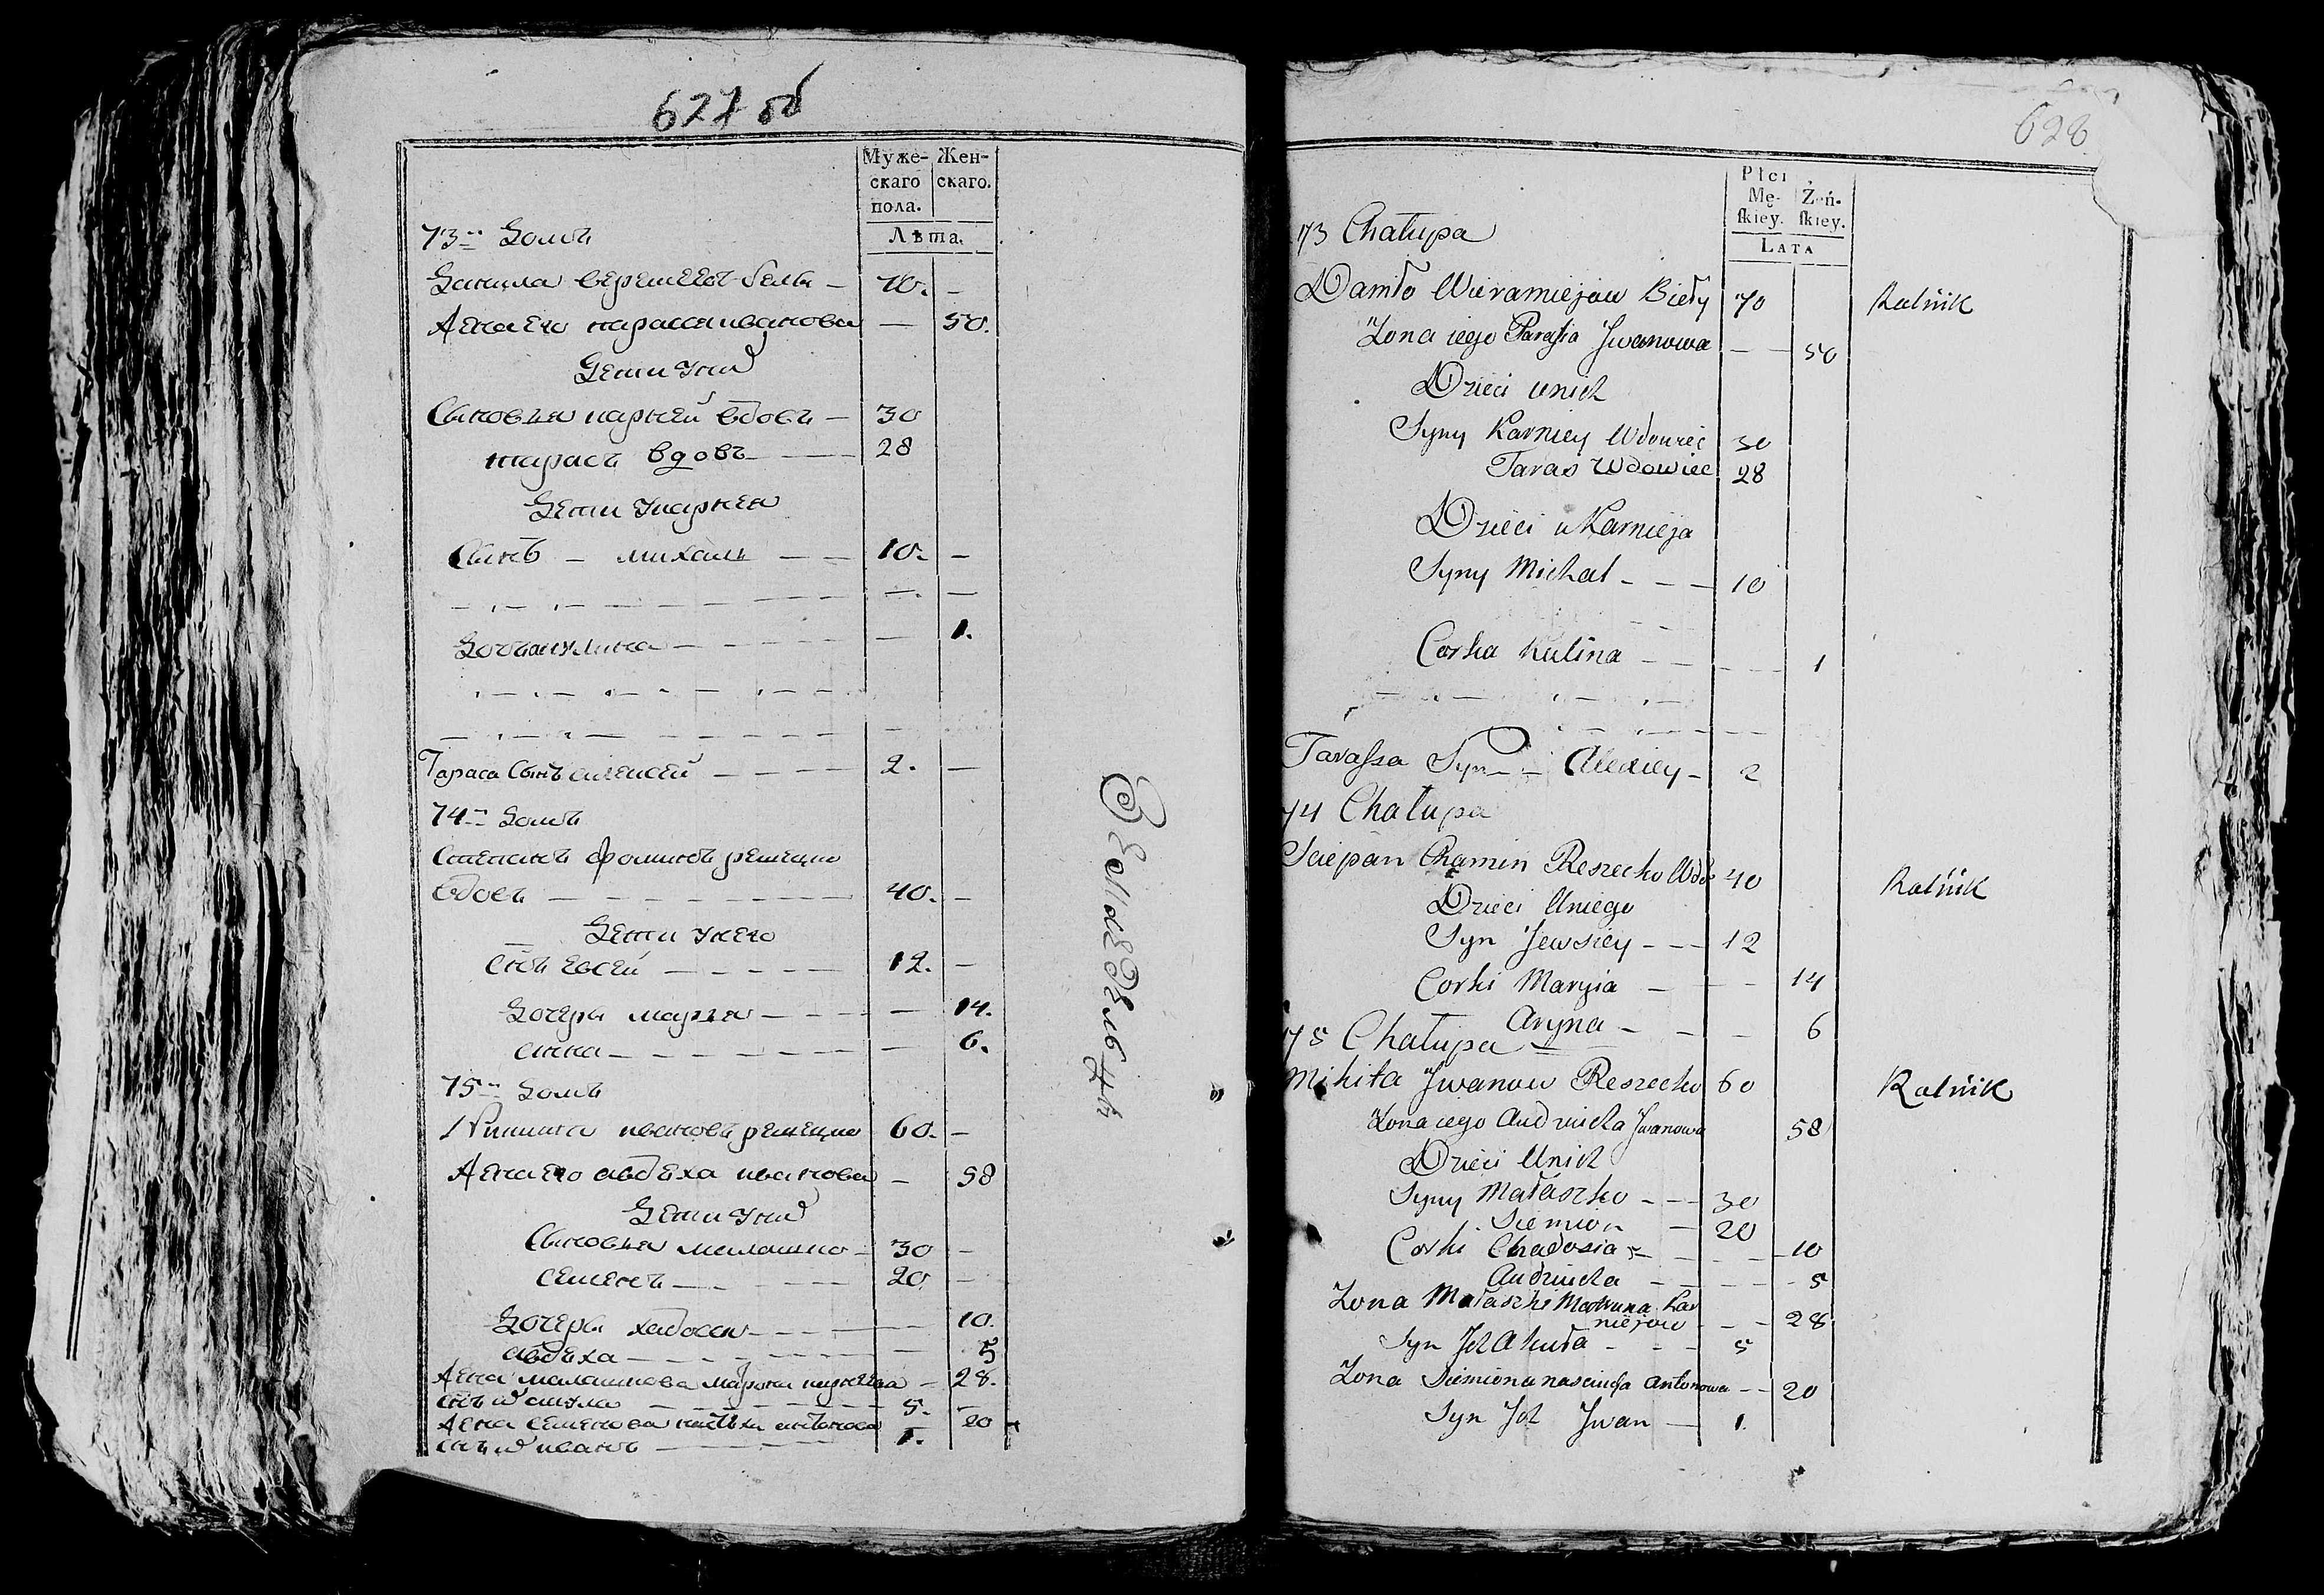 627 об
Муже-
скаго
пола.
Жен-
скаго.
Лѣта.
73й Домъ
Данила веремеевъ белы — 70. —
Жена его парасся иванова — 50.
Дети у них
Сыновья карней вдовъ — 30
тарасъ вдовъ — 28
Дети у карнея
Сынъ — михалъ — — 10. —
Дочь акулина — — — 1.
Тараса Сынъ алексей — — — — 2. —
74й Домъ
Степанъ фоминъ решецко
вдовъ — — — — 40. —
Дети у него
Снъ евсей — — — — 12. —
Дочери марья — — — — 14.
анна — — — — — 6.
75й Домъ
Никита ивановъ решецко 60. —
Жена его авдѣха иванова — 58
Дети у них
Сыновья малашко — 30 —
семенъ — — — 20. —
Дочери хадося — — — — 10.
авдѣха — — — — — 5
Жена малашкова марѳа карнеева — 28.
снъ их акула — — — 5. —
Жена семенова настѣха антонова — 20
снъ их иванъ — — — 1.
Земледѣльцы
628
Płci
Mę-
ſkiey.
Żeń-
ſkiey.
LATA
73 Chałupa
Daniło Wieramiejow BiełY 70 Rolnik
Zona iego Paraſia Jwanowa — — 50
Dzieci unich
Syny Karniey Wdowiec 30
Taras Wdowiec 28
Dzieci u Karnieja
Syny Michał - - - 10
Corka Kulina - - - - 1
Taraſsa Syn - - Alexiey - 2
74 Chałupa
Sciepan Chamin Reszecko Wdo 40 Rolnik
Dzieci Uniego
Syn Jewsiey - - - 12
Corki Maryia - - - 14
Aryna - - - 6
75 Chałupa
Mikita Jwanow Reszecko 60 Rolnik
Zona iego Audziucha Jwanowa 58
Dzieci Unich
Syny Małaszko - - - 30
Siemion — 20
Corki Chadosia - - - - 10
Audziucha - - - - - 5
Zona Małaszki Maruna Kar
niejow - - - 28
Syn Jch Akuła - - - 5
Zona Siemiona nasciucha Antonowa - - 20
Syn Jch Jwan — 1.